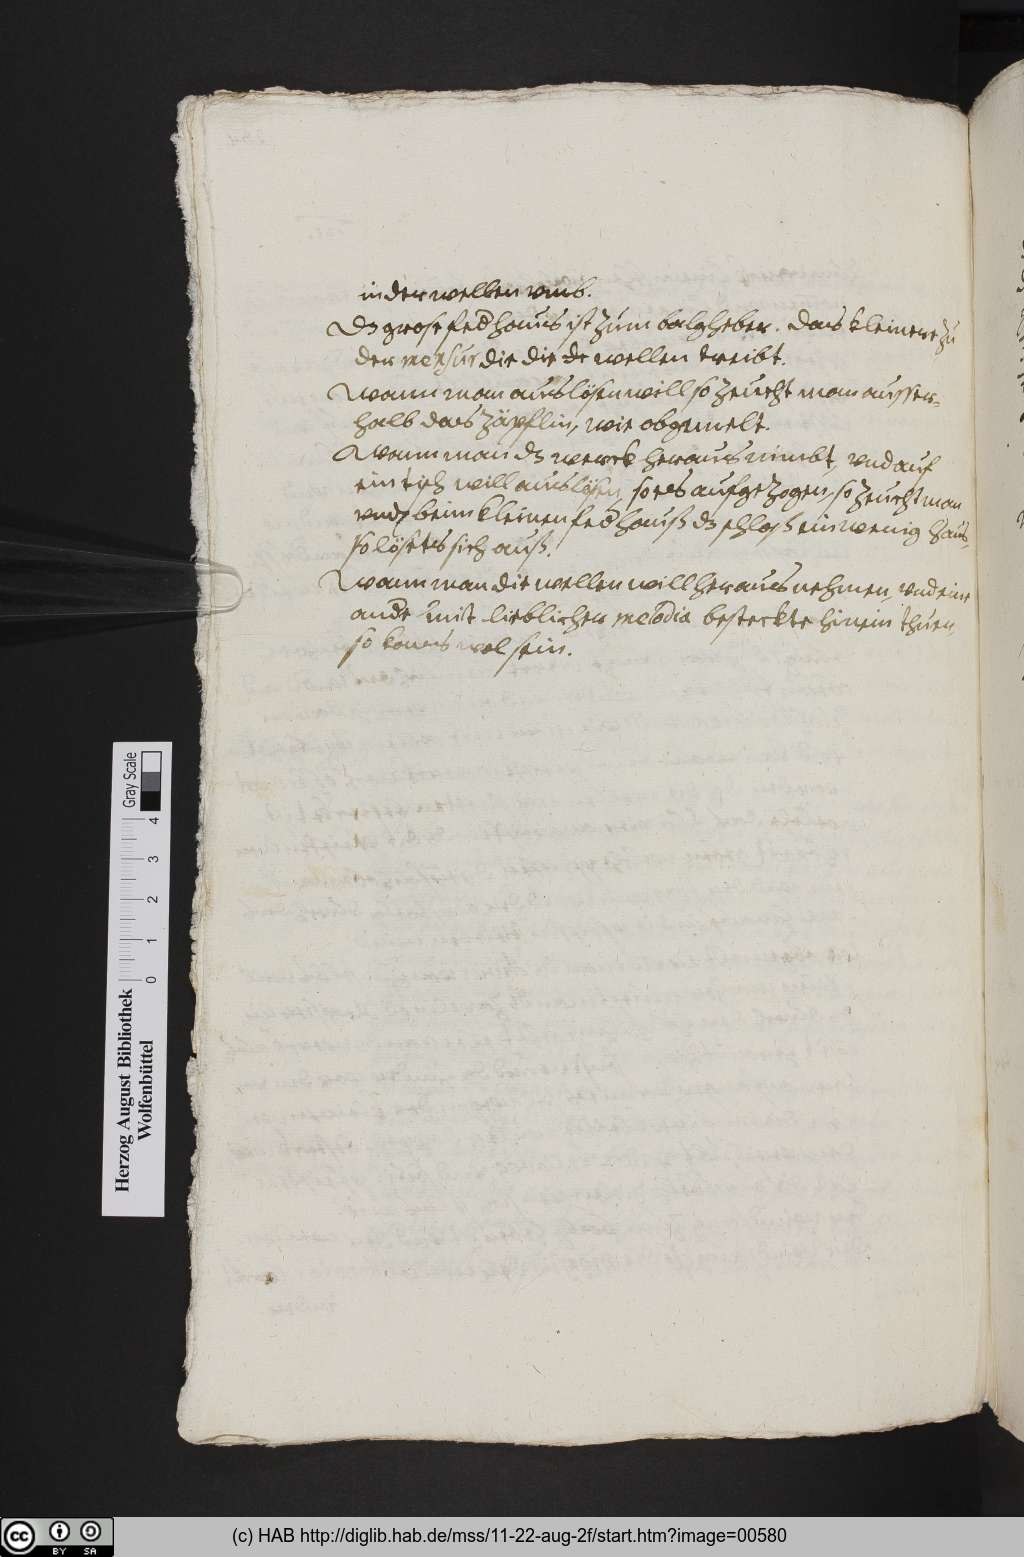 in der wellen vmb.
Dz grose fed̄hauss ist zum balgheber. das kleinere zu
der mensur die die dē wellen treibt.
Wann man auslösen will so zeucht man ausser-
halb das zäpflin, wie obgemelt.
Wann man dz werck heraus nimbt, vnd auf
ein tisch will auslösen, so es aufgezogen, so zeucht man
beim kleinen fed̄hauß dz schloß ein wenig haus,
so löset es sich auß.
Wann man die wellen will heraus nehmen, vnd eine
andē mit lieblicher melodia besteckte hinein thuen,
so kans wol sein.
Herzog August Bibliothek
Wolfenbüttel
0 1 2 3 4
Gray Scale
cc BY SA
(c) HAB http://diglib.hab.de/mss/11-22-aug-2f/start.htm?image=00580